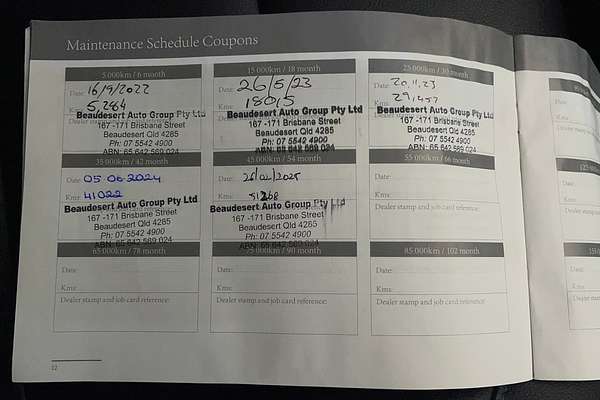 Maintenance Schedule Coupons
5 000km / 6 month
Date: 16/9/2022
Kms: 5,284
Beaudesert Auto Group Pty Ltd
167 -171 Brisbane Street
Beaudesert Qld 4285
Ph: 07 5542 4900
ABN: 65 642 569 024
15 000km / 18 month
Date: 26/5/23
Kms: 18015
Beaudesert Auto Group Pty Ltd
167 -171 Brisbane Street
Beaudesert Qld 4285
Ph: 07 5542 4900
ABN: 65 642 569 024
25 000km / 30 month
Date: 20.11.23
Kms:
Beaudesert Auto Group Pty Ltd
167 -171 Brisbane Street
Beaudesert Qld 4285
Ph: 07 5542 4900
ABN: 65 642 569 024
35 000km / 42 month
Date: 05.06.2024
Kms: 41022
Beaudesert Auto Group Pty Ltd
167 -171 Brisbane Street
Beaudesert Qld 4285
Ph: 07 5542 4900
ABN: 65 642 569 024
45 000km / 54 month
Date:
Kms: 51268
Beaudesert Auto Group Pty Ltd
167 -171 Brisbane Street
Beaudesert Qld 4285
Ph: 07 5542 4900
ABN: 65 642 569 024
55 000km / 66 month
Date:
Kms:
Dealer stamp and job card reference:
65 000km / 78 month
Date:
Kms:
Dealer stamp and job card reference:
75 000km / 90 month
Date:
Kms:
Dealer stamp and job card reference:
85 000km / 102 month
Date:
Kms:
Dealer stamp and job card reference:
12